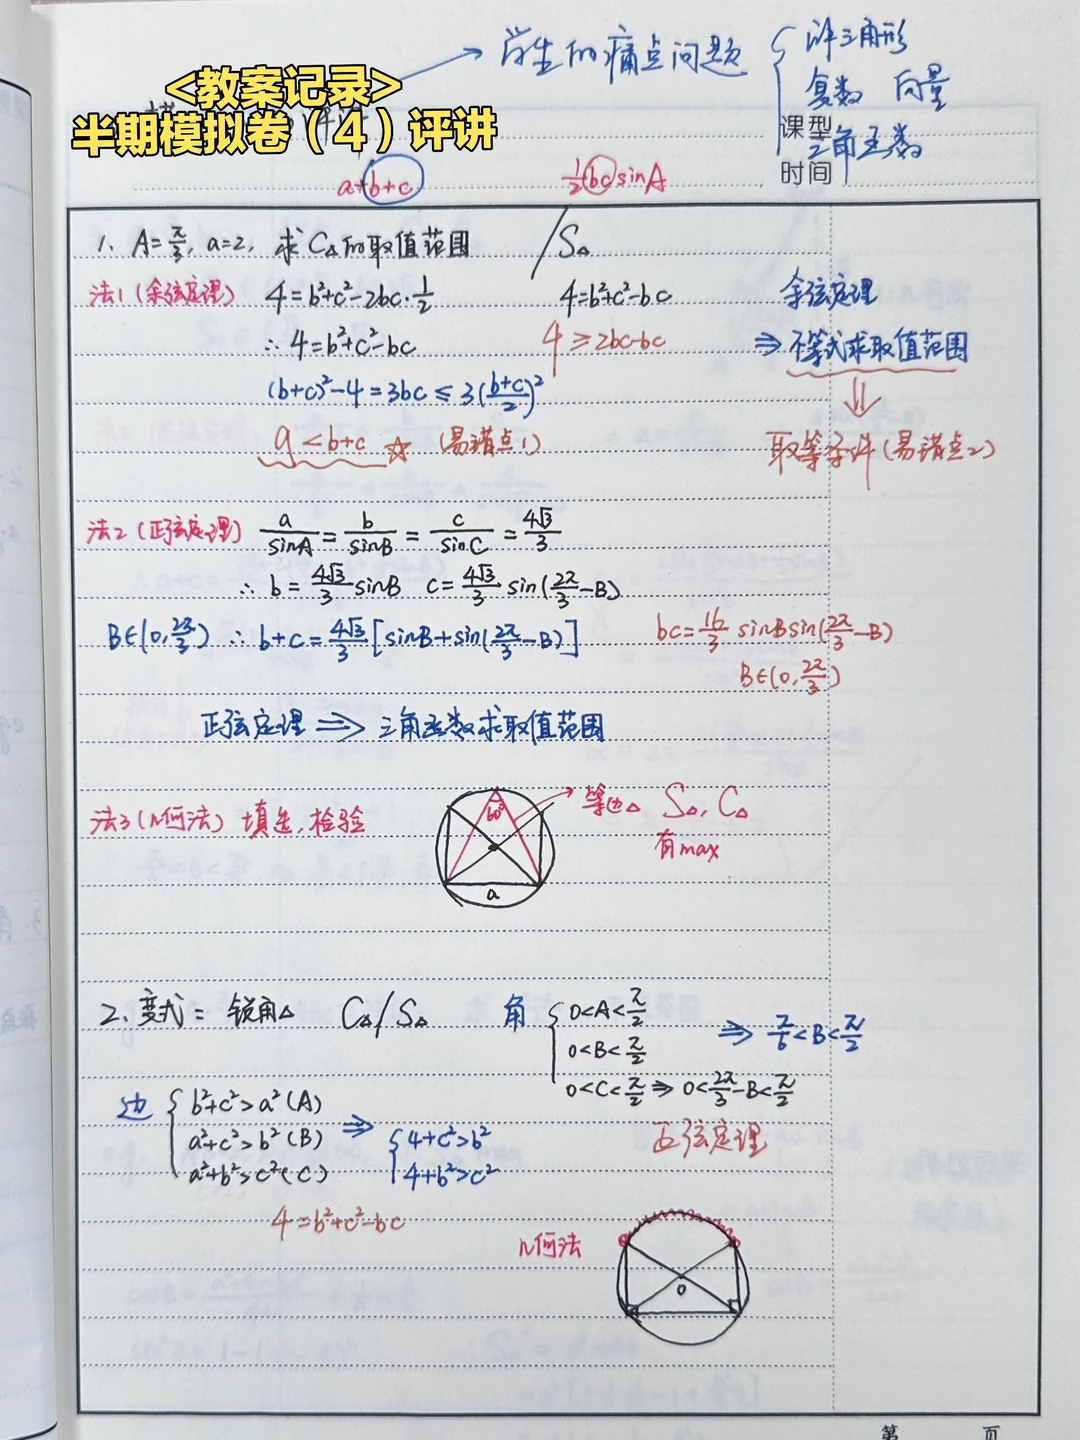 <教案记录>
半期模拟卷（4）评讲
→ 学生的痛点问题 { 计三角形
复数 向量
三角函数
课型
时间
a+b+c
½bcsinA
1. A=π/3, a=2, 求C△的取值范围 / S△
法1(余弦定理) 4=b²+c²-2bc·½
4=b²+c²-bc
余弦定理
∴ 4=b²+c²-bc
4≥2bc-bc
⇒ 不等式求取值范围
(b+c)²-4=3bc≤3((b+c)/2)²
⇓
a<b+c ☆ (易错点1)
取等条件(易错点2)
法2(正弦定理) a/sinA = b/sinB = c/sinC = 4√3/3
∴ b=4√3/3 sinB c=4√3/3 sin(2π/3-B)
B∈(0,2π/3) ∴ b+c=4√3/3[sinB+sin(2π/3-B)]
bc=16/3 sinBsin(2π/3-B)
B∈(0,2π/3)
正弦定理 ⇒ 三角函数求取值范围
法3(几何法) 填选,检验
60°
a
→ 等边△ S△, C△
有max
2. 变式: 锐角△ C△/S△
角 { 0<A<π/2
0<B<π/2
0<C<π/2 ⇒ 0<2π/3-B<π/2
⇒ π/6<B<π/2
正弦定理
边 { b²+c²>a²(A)
a²+c²>b²(B)
a²+b²>c²(C)
⇒ { 4+c²>b²
4+b²>c²
4=b²+c²-bc
几何法
O
第 页